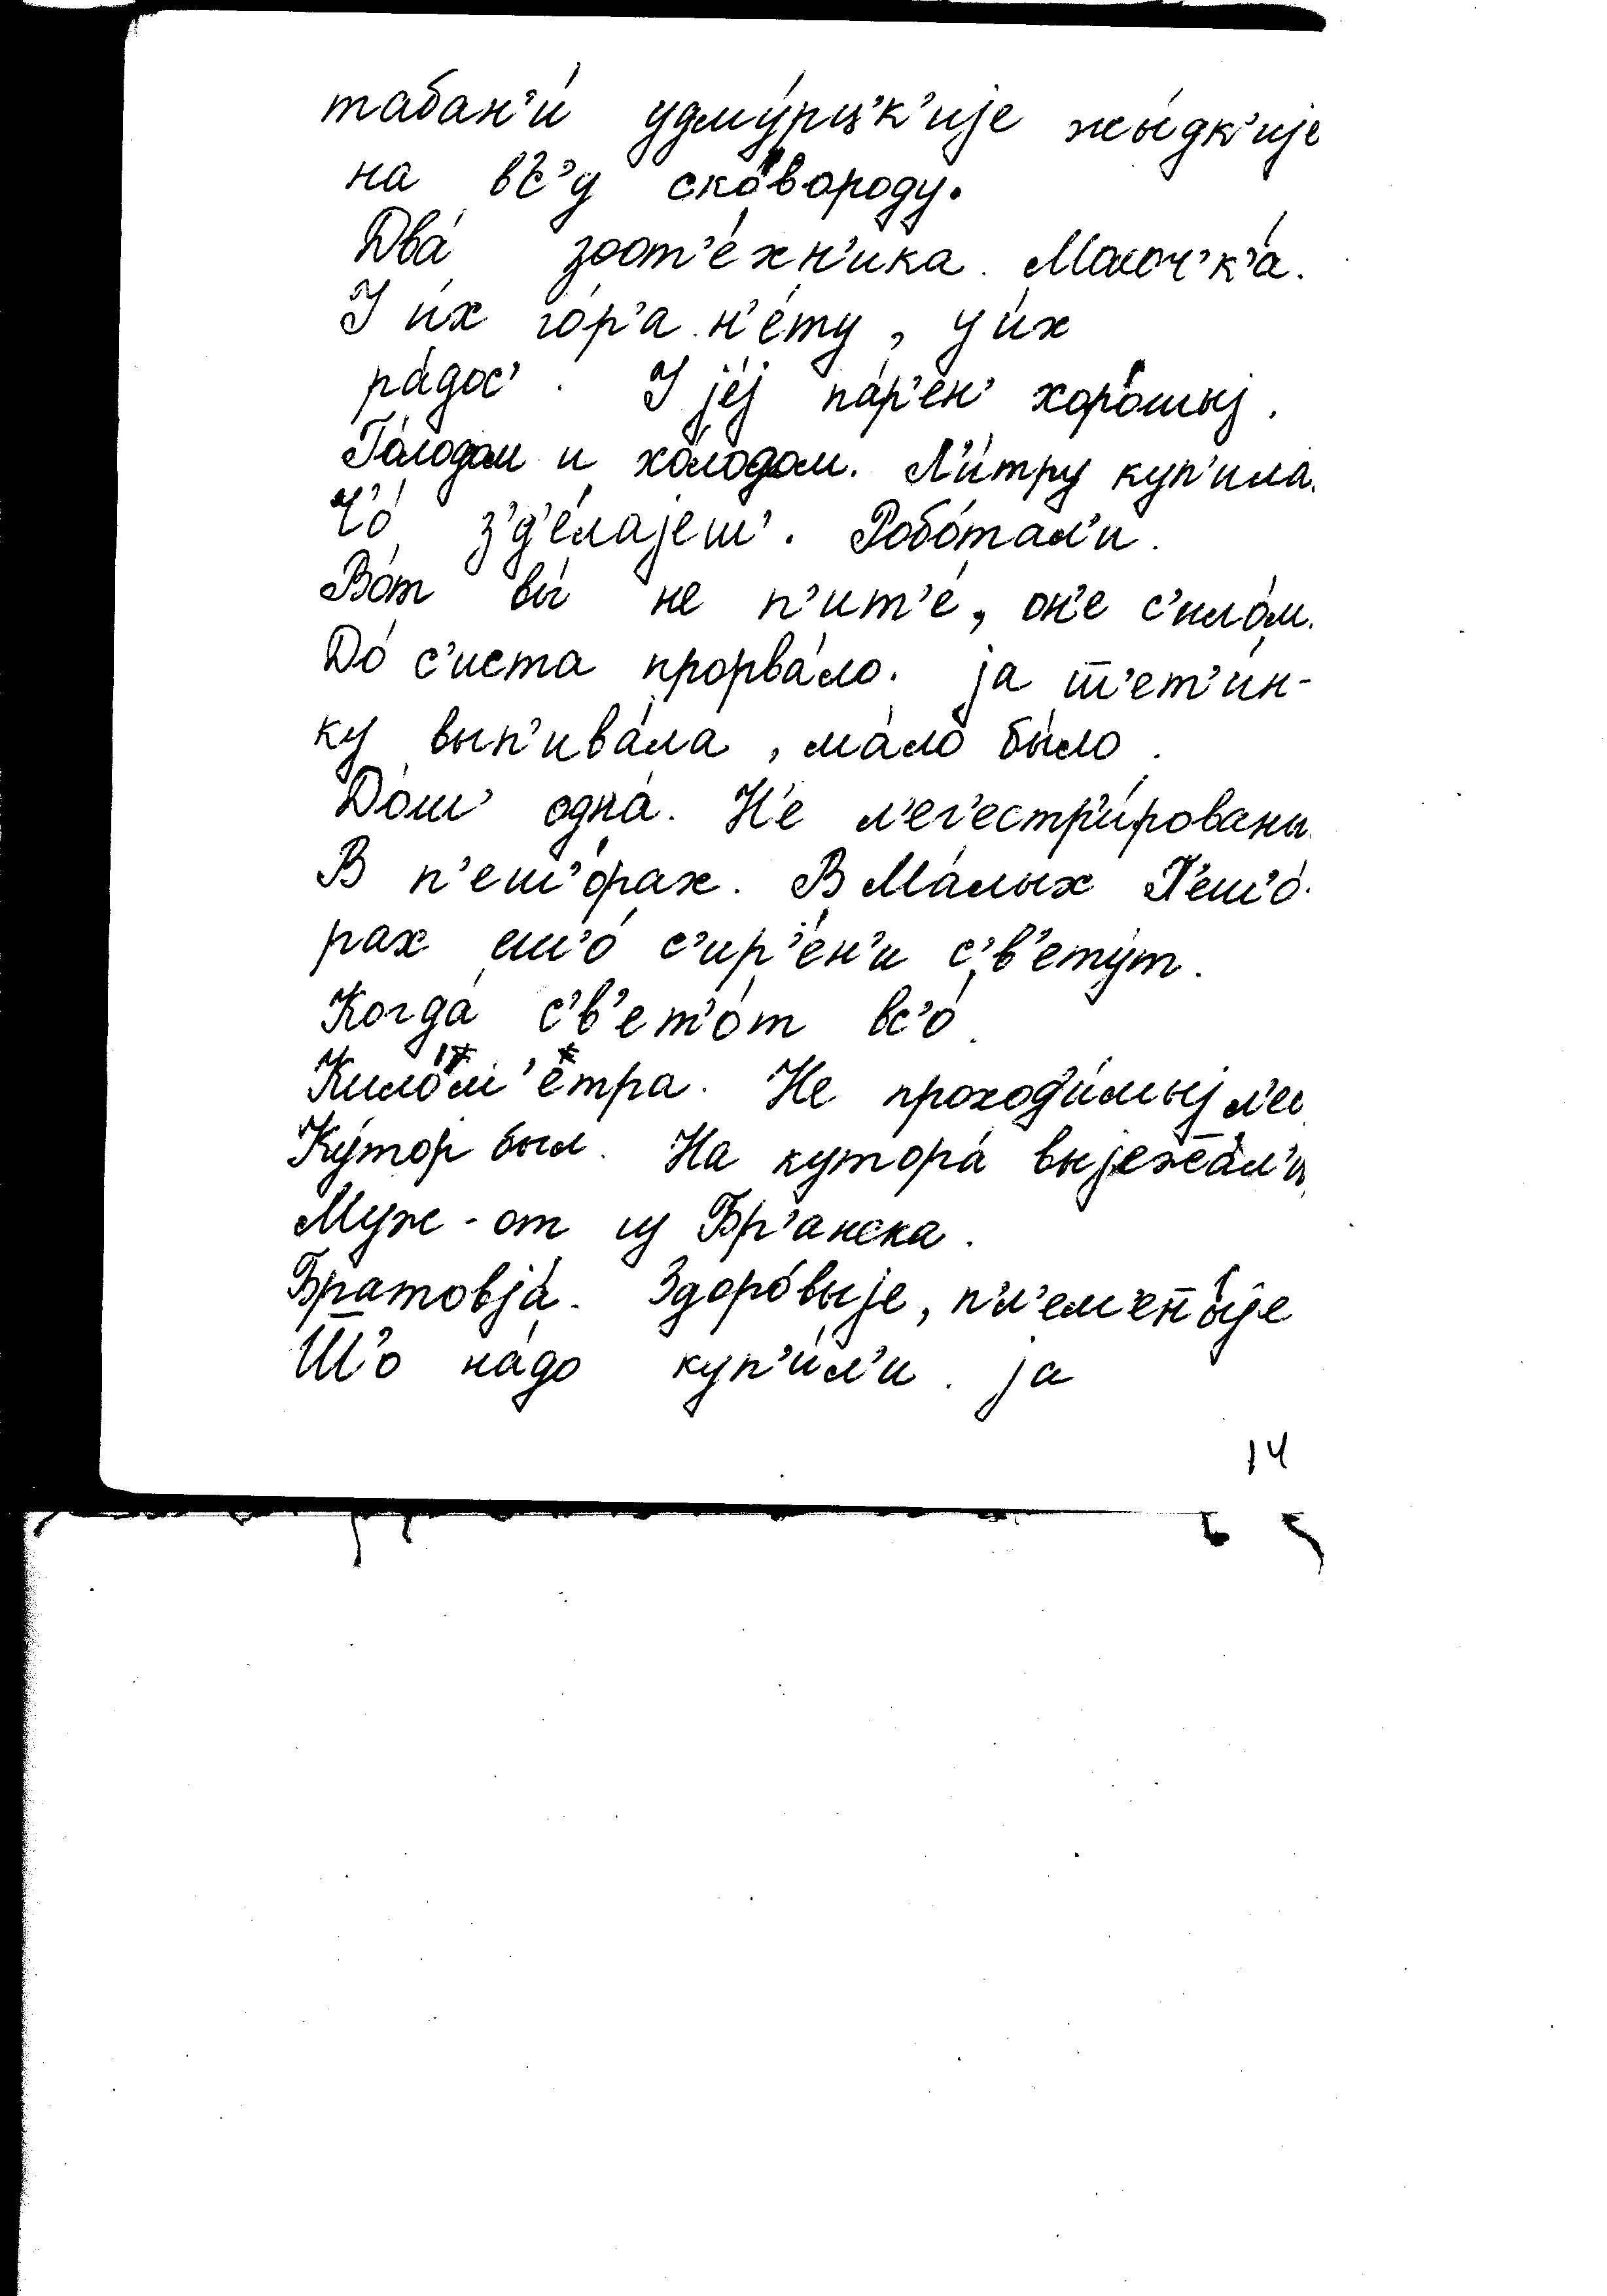 табан'и́ удму́рц'к'ијe жы́дк'ијe
на вс'у ско́вороду.
Два́ зоот'е́хн'ика. Молоч'к'а́.
У и́х го́р'а н'е́ту, у и́х
ра́дос'. У је́ј па́р'ен' хоро́шыј.
Го́лодом и хо́лодом. Л'и́тру куп'ила.
Ч'о́ з'д'е́лајеш'. Робо́тал'и.
Во́т вы́ не п'ит'е́, он'е с'ило́м.
До́ с'иста прорва́ло. ја ш̅'ет'и́н-
ку вып'ива́ла, ма́ло бы́ло.
До́ш' одна́. Н'е л'ег'естр'и́рованы.
В п'еш'о́рах. В Ма́лых П'еш'о́-
рах еш'о́ с'ир'е́н'и с'в'ету́т.
Когда́ с'в'ет'о́т вс'о́.
Кило́м'етра. Не проход'и́мыј л'ес.
Ку́тор был. На кутора́ выјежа́л'и.
Муж-от из Бр'анска.
Братовја́. Здоро́выје, пл'ем'ен̅ы́је
Ш̅'о на́до куп'и́л'и. ја
14